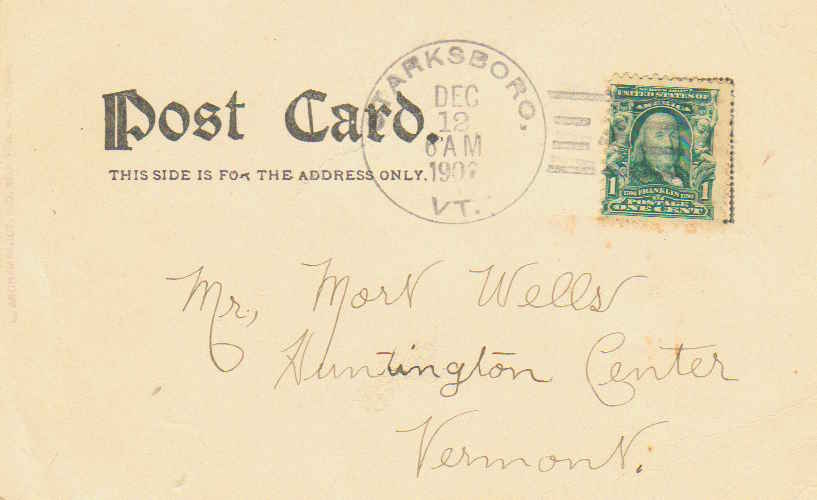 STARKSBORO,
DEC
12
6 AM
1907
VT.
Post Card.
THIS SIDE IS FOR THE ADDRESS ONLY.
UNITED STATES OF
AMERICA
1 FRANKLIN 1
POSTAGE
ONE CENT
Mr, Mort Wells
Huntington Center
Vermont.